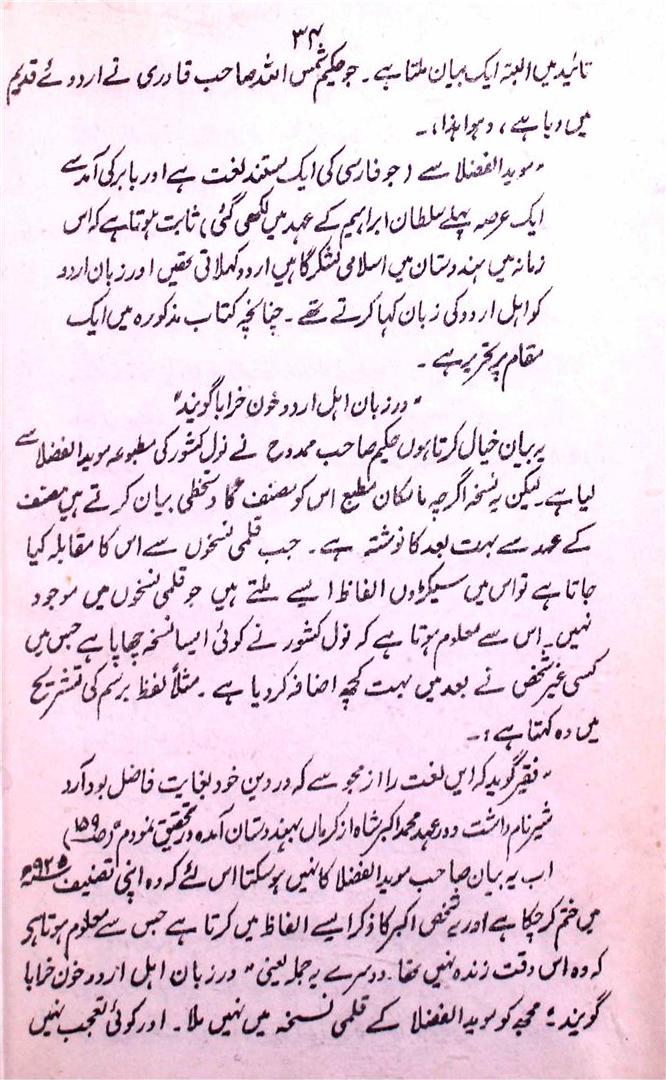 ۳۴
تائید میں البتہ ایک بیان ملتا ہے۔ جو حکیم شمس اللہ صاحب قادری نے اردوئے قدیم
میں دیا ہے، وہوا ہذا،۔
"موید الفضلا سے (جو فارسی کی ایک مستند لغت ہے اور بابر کی آمد سے
ایک عرصہ پہلے سلطان ابراہیم کے عہد میں لکھی گئی) ثابت ہوتا ہے کہ اس
زمانہ میں ہندوستان میں اسلامی لشکر گاہیں اردو کہلاتی تھیں اور زبان اردو
کو اہل اردو کی زبان کہا کرتے تھے۔ چنانچہ کتاب مذکورہ میں ایک
مقام پر تحریر ہے۔
"در زبان اہل اردو خون خرابا گویند"
یہ بیان خیال کرتا ہوں حکیم صاحب ممدوح نے نول کشور کی مطبوعہ موید الفضلا سے
لیا ہے۔ لیکن یہ نسخہ اگرچہ مالکان مطبع اس کو مصنف کا دستخطی بیان کرتے ہیں مصنف
کے عہد سے بہت بعد کا نوشتہ ہے۔ جب قلمی نسخوں سے اس کا مقابلہ کیا
جاتا ہے تو اس میں سیکڑوں الفاظ ایسے ملتے ہیں جو قلمی نسخوں میں موجود
نہیں۔ اس سے معلوم ہوتا ہے کہ نول کشور نے کوئی ایسا نسخہ چھاپا ہے جس میں
کسی غیر شخص نے بعد میں بہت کچھ اضافہ کر دیا ہے۔ مثلاً لفظ برسم کی تشریح
میں وہ کہتا ہے:۔
"فقیر گوید کہ ایں لغت را از مجوسے کہ در دین خود بغایت فاضل بود آرد
شیر نام داشت و در عہد محمد اکبر شاہ از کرماں بہندوستان آمدہ در تحقیق نمودم" (صـ ۱۵۹)
اب یہ بیان صاحب موید الفضلا کا نہیں ہو سکتا اس لئے کہ وہ اپنی تصنیف ۹۲۵ھ
میں ختم کر چکا ہے اور یہ شخص اکبر کا ذکر ایسے الفاظ میں کرتا ہے جس سے معلوم ہوتا ہے
کہ وہ اس وقت زندہ نہیں تھا۔ دوسرے یہ جملہ یعنی "در زبان اہل اردو خون خرابا
گویند" مجھ کو موید الفضلا کے قلمی نسخہ میں نہیں ملا۔ اور کوئی تعجب نہیں